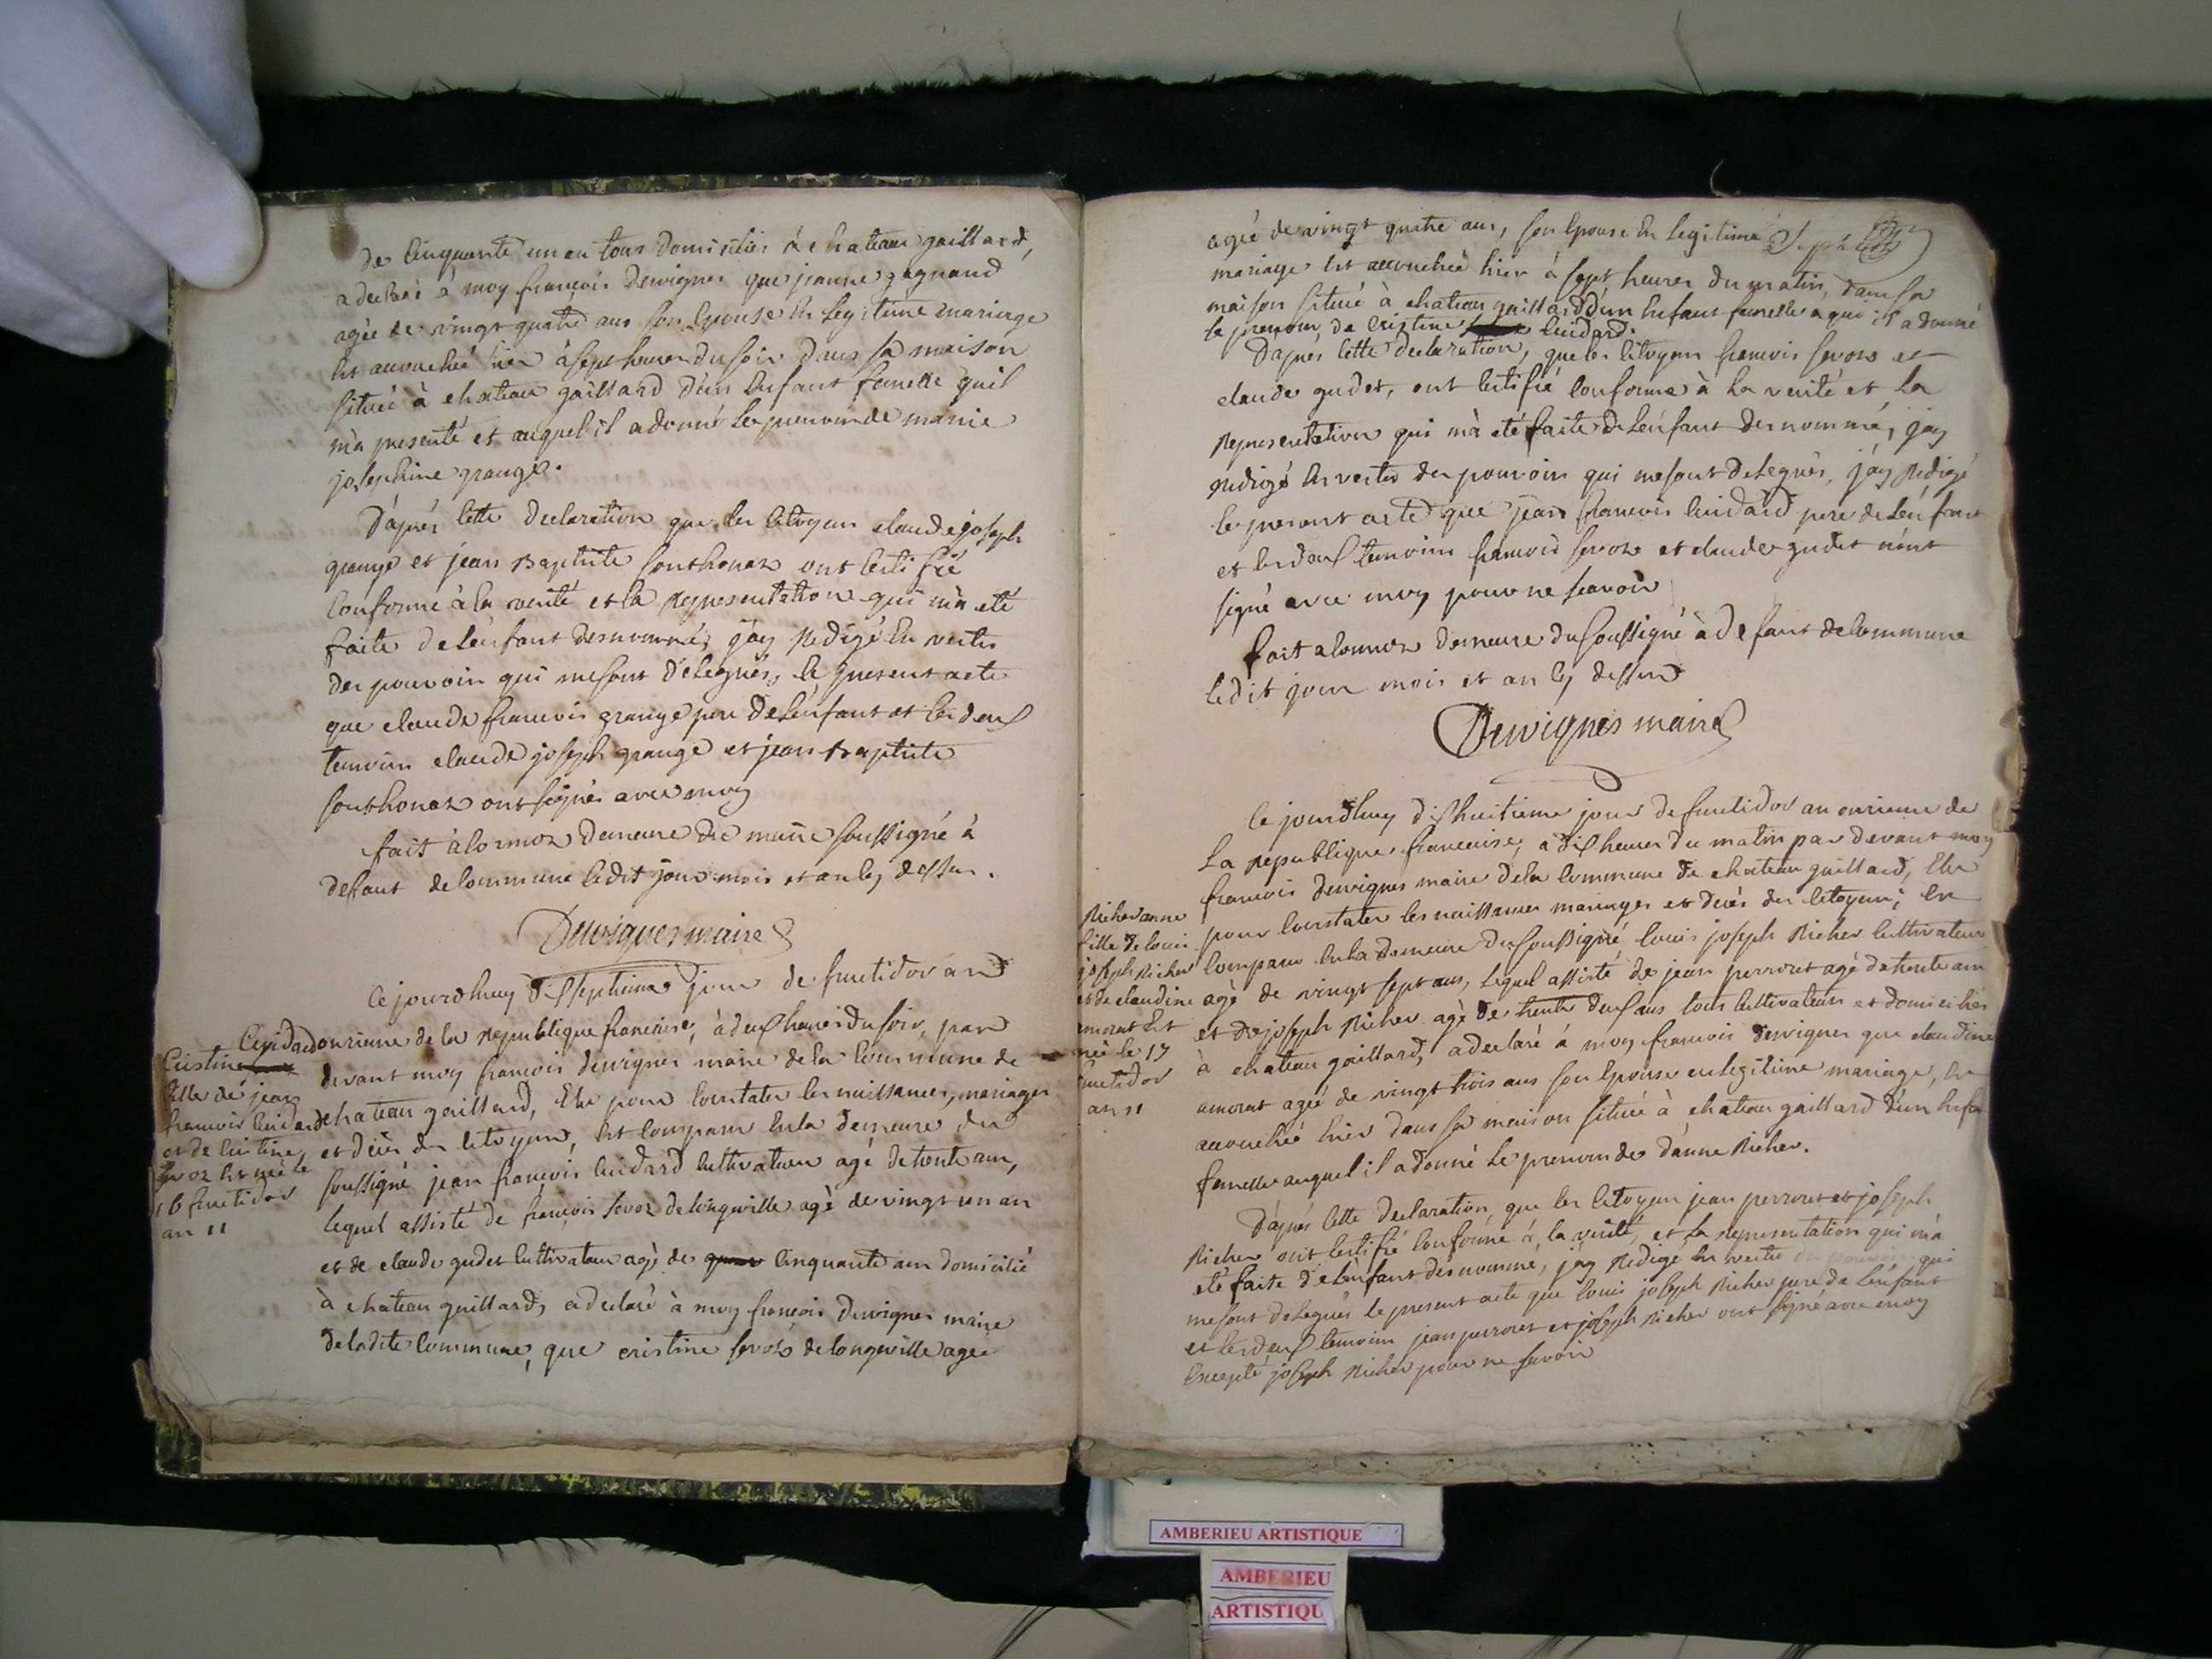 de cinquante un an tous domiciliés à chateau gaillard,
a declaré à moy francois Dervignes que jeanne gagnand
agée de vingt quatre ans son Epouse En legitime mariage
Est accouchée hier à sept heures du soir dans sa maison
située à chateau gaillard d'un Enfant femelle quil
m'a presenté et auquel il a donné le prenom de marie
josephine grange.
D'aprés cette declaration que les citoyens claude joseph
grange et jean Baptiste Southonax ont certifié
conforme à la verité et la representation qui m'a eté
faite de l'enfant denommé, j'ay redigé En vertu
des pouvoir qui me sont delegués, le present acte
que claude francois grange pere de l'enfant et les deux
temoins claude joseph grange et jean baptiste
Southonax ont signés avec moy
fait à lormoz demeure du maire soussigné à
defaut de commune ledit jour mois et an cy dessus.
Dervignes maire
Cejourdhuy dix septieme jour de fructidor an
onzieme de la republique francaise, à deux heures du soir, par
devant moy francois dervignes maire de la commune de
chateau gaillard, Elu pour constater les naissances, mariages
et décès des citoyens, Est comparu En la demeure du
soussigné jean francois cuidard cultivateur agé de trente ans,
lequel assisté de francois Savoz de longeville agé de vingt un an
et de claude gudet cultivateur agé de cinquante ans domicilié
à chateau gaillard, a declaré à moy francois Dervignes maire
de ladite commune, que cristine Savoz de longeville agée
Cuidard
Cristine
fille de jean
francois cuidard
et de cristine
Savoz Est née le
16 fructidor
an 11
agée de vingt quatre ans, son Epouse En legitime
mariage Est accouchée hier à sept heures du matin, dans sa
maison située à chateau gaillard d'un Enfant femelle a qui il a donné
le prenom de Cristine cuidard.
D'aprés cette declaration, que les citoyens francois Savoz et
claude gudet, ont certifié conforme à la verité et la
representation qui m'a eté faite de l'enfant denommé, j'ay
redigé En vertu des pouvoir qui me sont delegués, j'ay redigé
le present acte que jean francois cuidard pere de l'enfant
et les deux temoins francois Savoz et claude gudet n'ont
signé avec moy pour ne scavoir
fait a lormoz demeure du soussigné à defaut de commune
ledit jour mois et an cy dessus
Dervignes maire
Ce jourdhuy dix huitieme jour de fructidor an onzieme de
la republique francaise, à dix heures du matin par devant moy
francois dervignes maire de la commune de chateau gaillard, Elu
pour constater les naissances mariages et décès des citoyens; Est
comparu En la demeure du soussigné louis joseph Richer cultivateur
agé de vingt sept ans, lequel assisté de jean perrouet agé de trente ans
et de joseph Richer agé de trente deux ans tous cultivateurs et domiciliés
à chateau gaillard, a declaré à moy francois dervignes que claudine
amorat agée de vingt trois ans son Epouse en legitime mariage, Est
accouchée hier dans sa maison située à chateau gaillard d'un Enfa
femelle auquel il a donné le prenom de d'anne Richer.
D'aprés cette declaration que les citoyens jean perrouet et joseph
Richer ont certifié conforme à la verité, et la representation qui m'a
eté faite de l'enfant dénommé, j'ay redigé En vertu des pouvoir qui
me sont delegués le present acte que louis joseph Richer pere de l'enfant
et les deux temoins jean perrouet et joseph Richer ont signé avec moy
Excepté joseph Richer pour ne savoir
Richer anne
fille de louis
joseph Richer
et de claudine
amorat Est
née le 17
fructidor
an 11
AMBERIEU ARTISTIQUE
AMBERIEU
ARTISTIQU